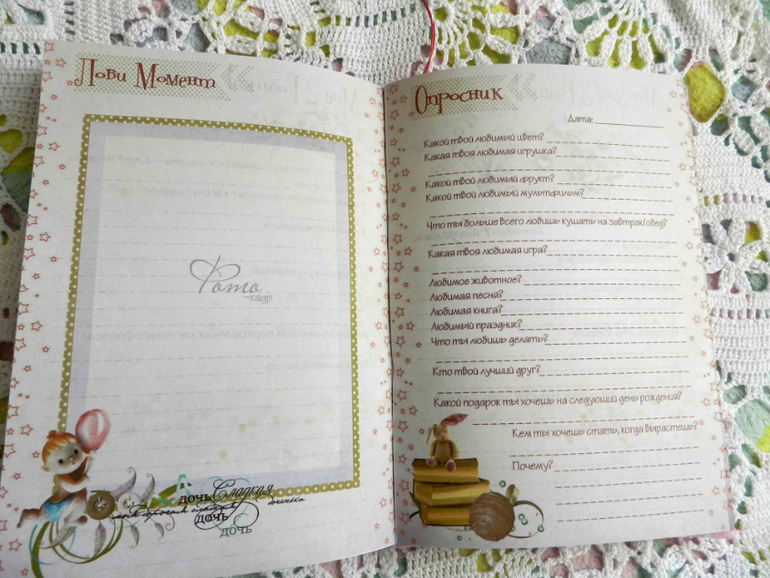 Лови Момент
Фото
-кадр
дочь Сладкая
дочь
дочь
Опросник
Дата:
Какой твой любимый цвет?
Какая твоя любимая игрушка?
Какой твой любимый фрукт?
Какой твой любимый мультфильм?
Что ты больше всего любишь кушать на завтрак/обед?
Какая твоя любимая игра?
Любимое животное?
Любимая песня?
Любимая книга?
Любимый праздник?
Что ты любишь делать?
Кто твой лучший друг?
Какой подарок ты хочешь на следующий день рождения?
Кем ты хочешь стать, когда вырастешь?
Почему?